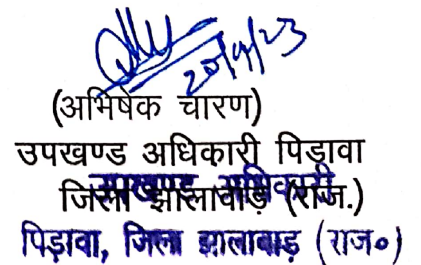 20/9/23
(अभिषेक चारण)
उपखण्ड अधिकारी पिडावा
जिला झालावाड़ (राज.)
उपखण्ड अधिकारी
पिड़ावा, जिला झालावाड़ (राज०)